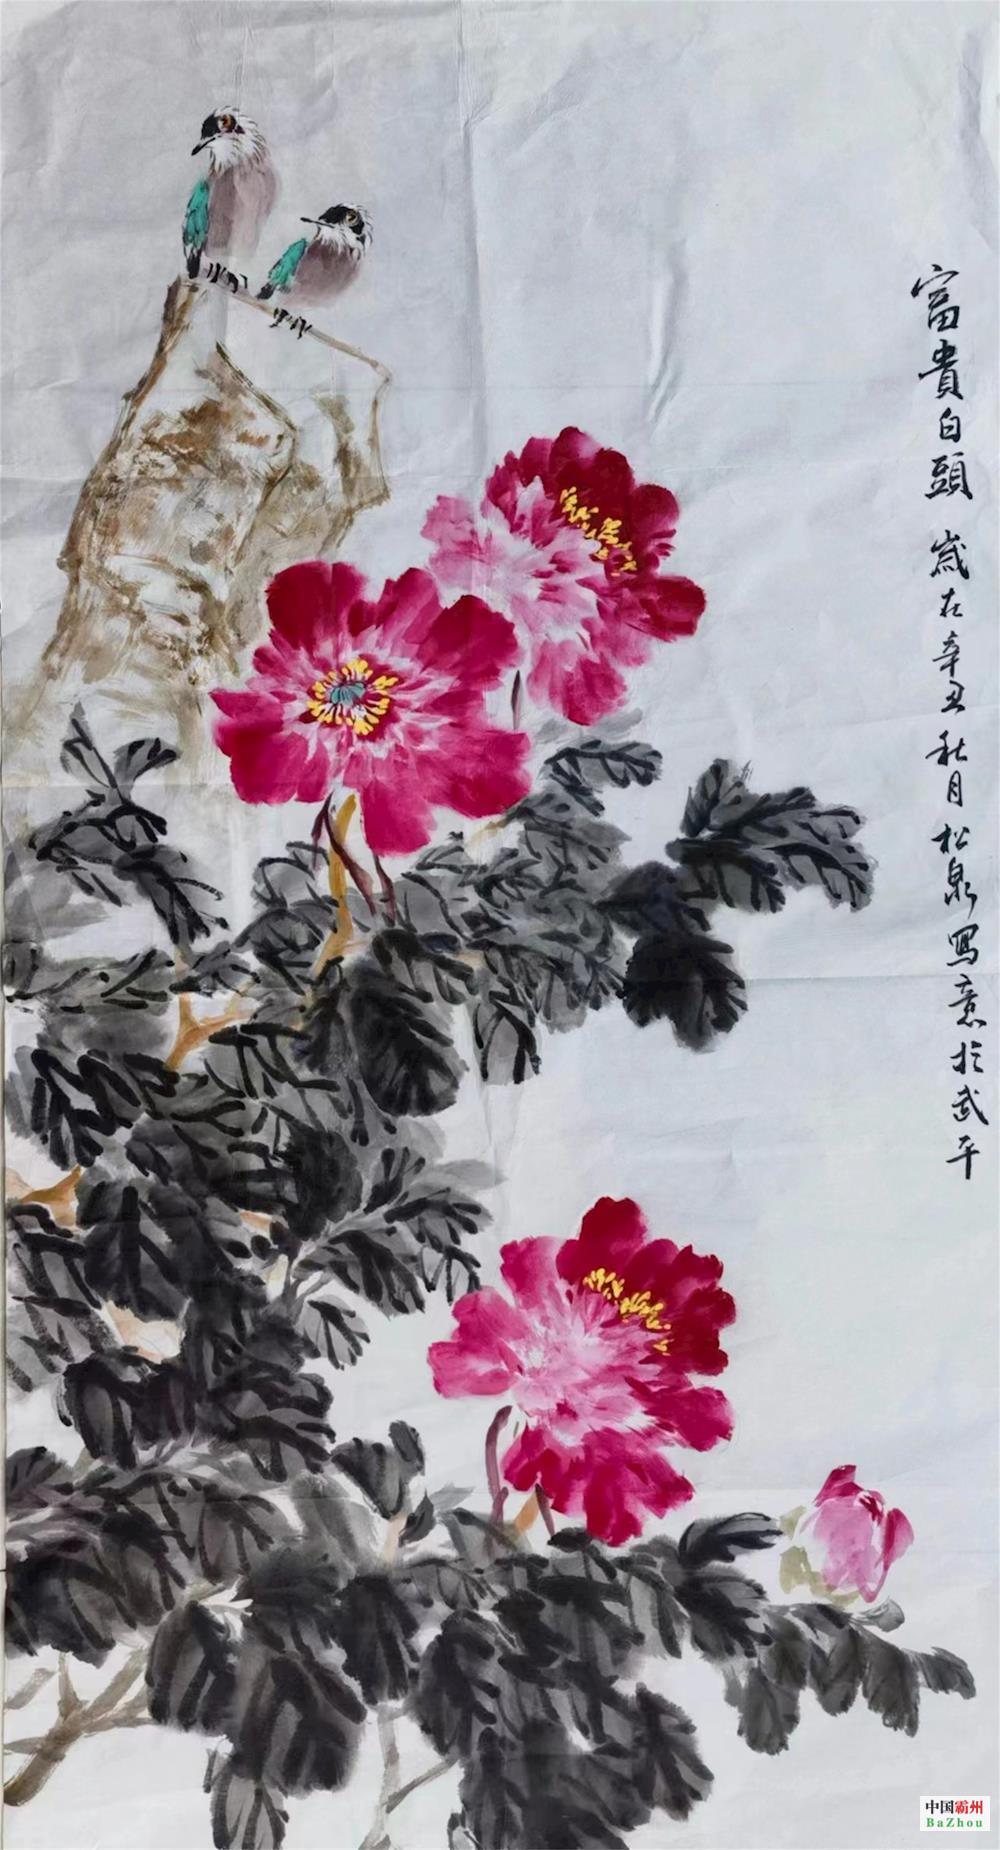 富貴白頭 歲在辛丑秋月松泉寫意於武平
中国霸州
BaZhou